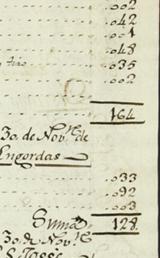 .002
.042
.001
.048
.035
.002
164
30. de Nov.re de
Engordas
.033
.092
.003
Suma 128
30. de Nov.re